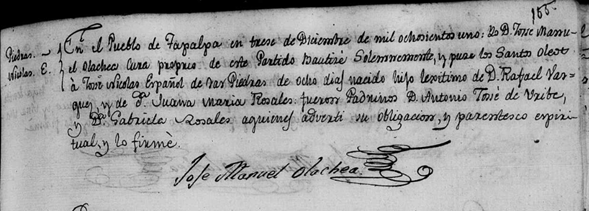 155.
Piedras. En el Pueblo de Tapalpa en trese de Diciembre de mil ochosientos uno: Yo D. Jose Manu-
Nicolas. E. el Olachea Cura proprio de este Partido Bautisé Solemnemente, y puse los Santos Oleos
à Jose Nicolas Español de las Piedras de ocho dias nacido hijo lexitimo de D. Rafael Vas-
ques, y de Da. Juana Maria Rosales: fueron Padrinos D. Antonio José de Uribe,
y Da. Gabriela Rosales aquienes adverti su obligacion, y parentesco espiri-
tual, y lo firmè.
Jose Manuel Olachea